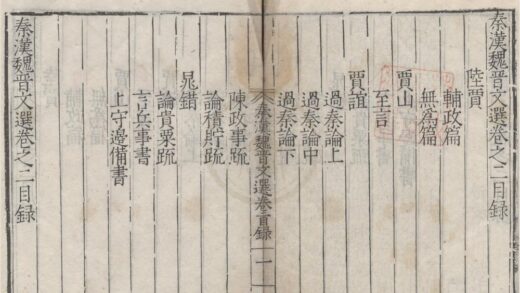 秦漢魏晉文選卷之二目録
陸賈
輔政篇
無為篇
賈山
至言
賈誼
過秦論上
過秦論中
過秦論下
秦漢魏晉文選卷二目録
一
陳政事疏
論積貯疏
晁錯
論貴粟疏
言兵事書
上守邊備書
秦漢魏晉文選卷之二目録